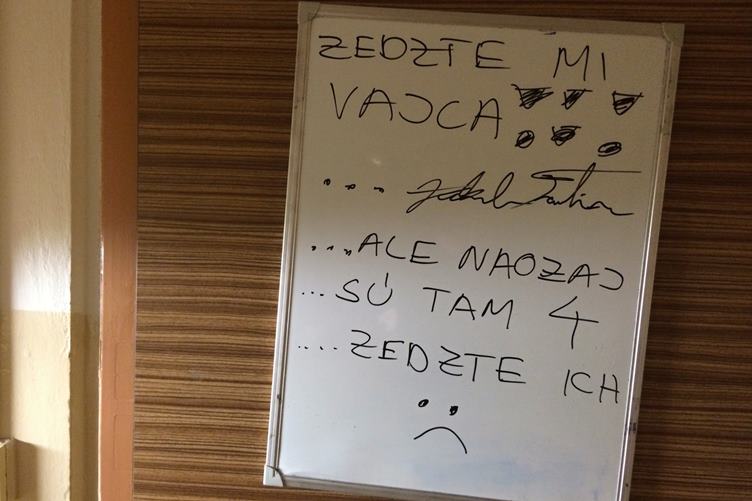 ZEDZTE MI
VAJCA !!!
...
...ALE NAOZAJ
...SÚ TAM 4
....ZEDZTE ICH